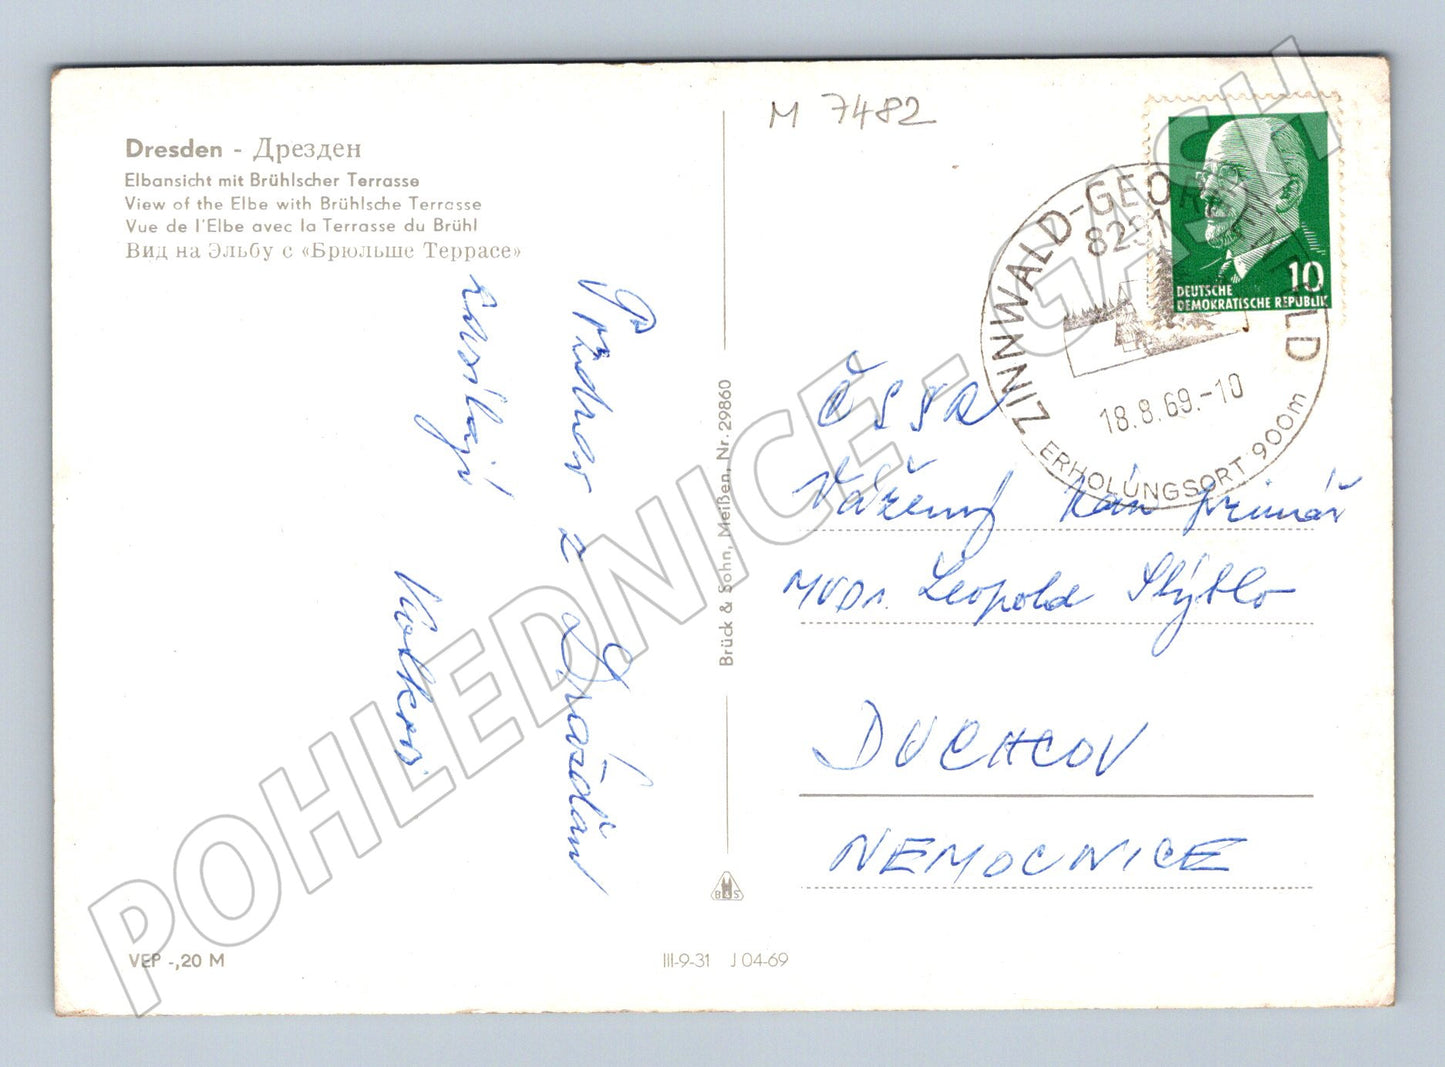 M 7482
Dresden - Дрезден
Elbansicht mit Brühlscher Terrasse
View of the Elbe with Brühlsche Terrasse
Vue de l'Elbe avec la Terrasse du Brühl
Вид на Эльбу с «Брюльше Террасе»
z Drážďan
zasílají
VEP -,20 M
Brück & Sohn, Meißen, Nr. 29860
B & S
III-9-31 J 04-69
10
DEUTSCHE
DEMOKRATISCHE REPUBLIK
ZINNWALD-GEORGENFELD
8291
18.8.69.-10
ERHOLUNGSORT 900m
ČSSR
Vážený pán primář
MUDr. Leopold Stýblo
DUCHCOV
NEMOCNICE
POHLEDNICE - GASH